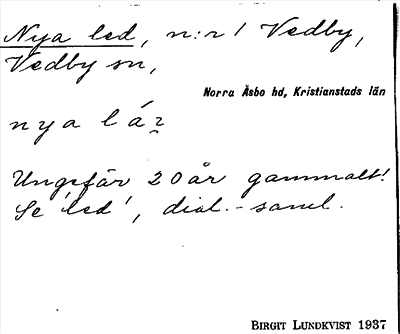 Nya led, n:r 1 Vedby,
Vedby sn,
Norra Åsbo hd, Kristianstads län
nya lá
Ungefär 20 år gammalt!
Se 'led', dial.-saml.
BIRGIT LUNDKVIST 1937